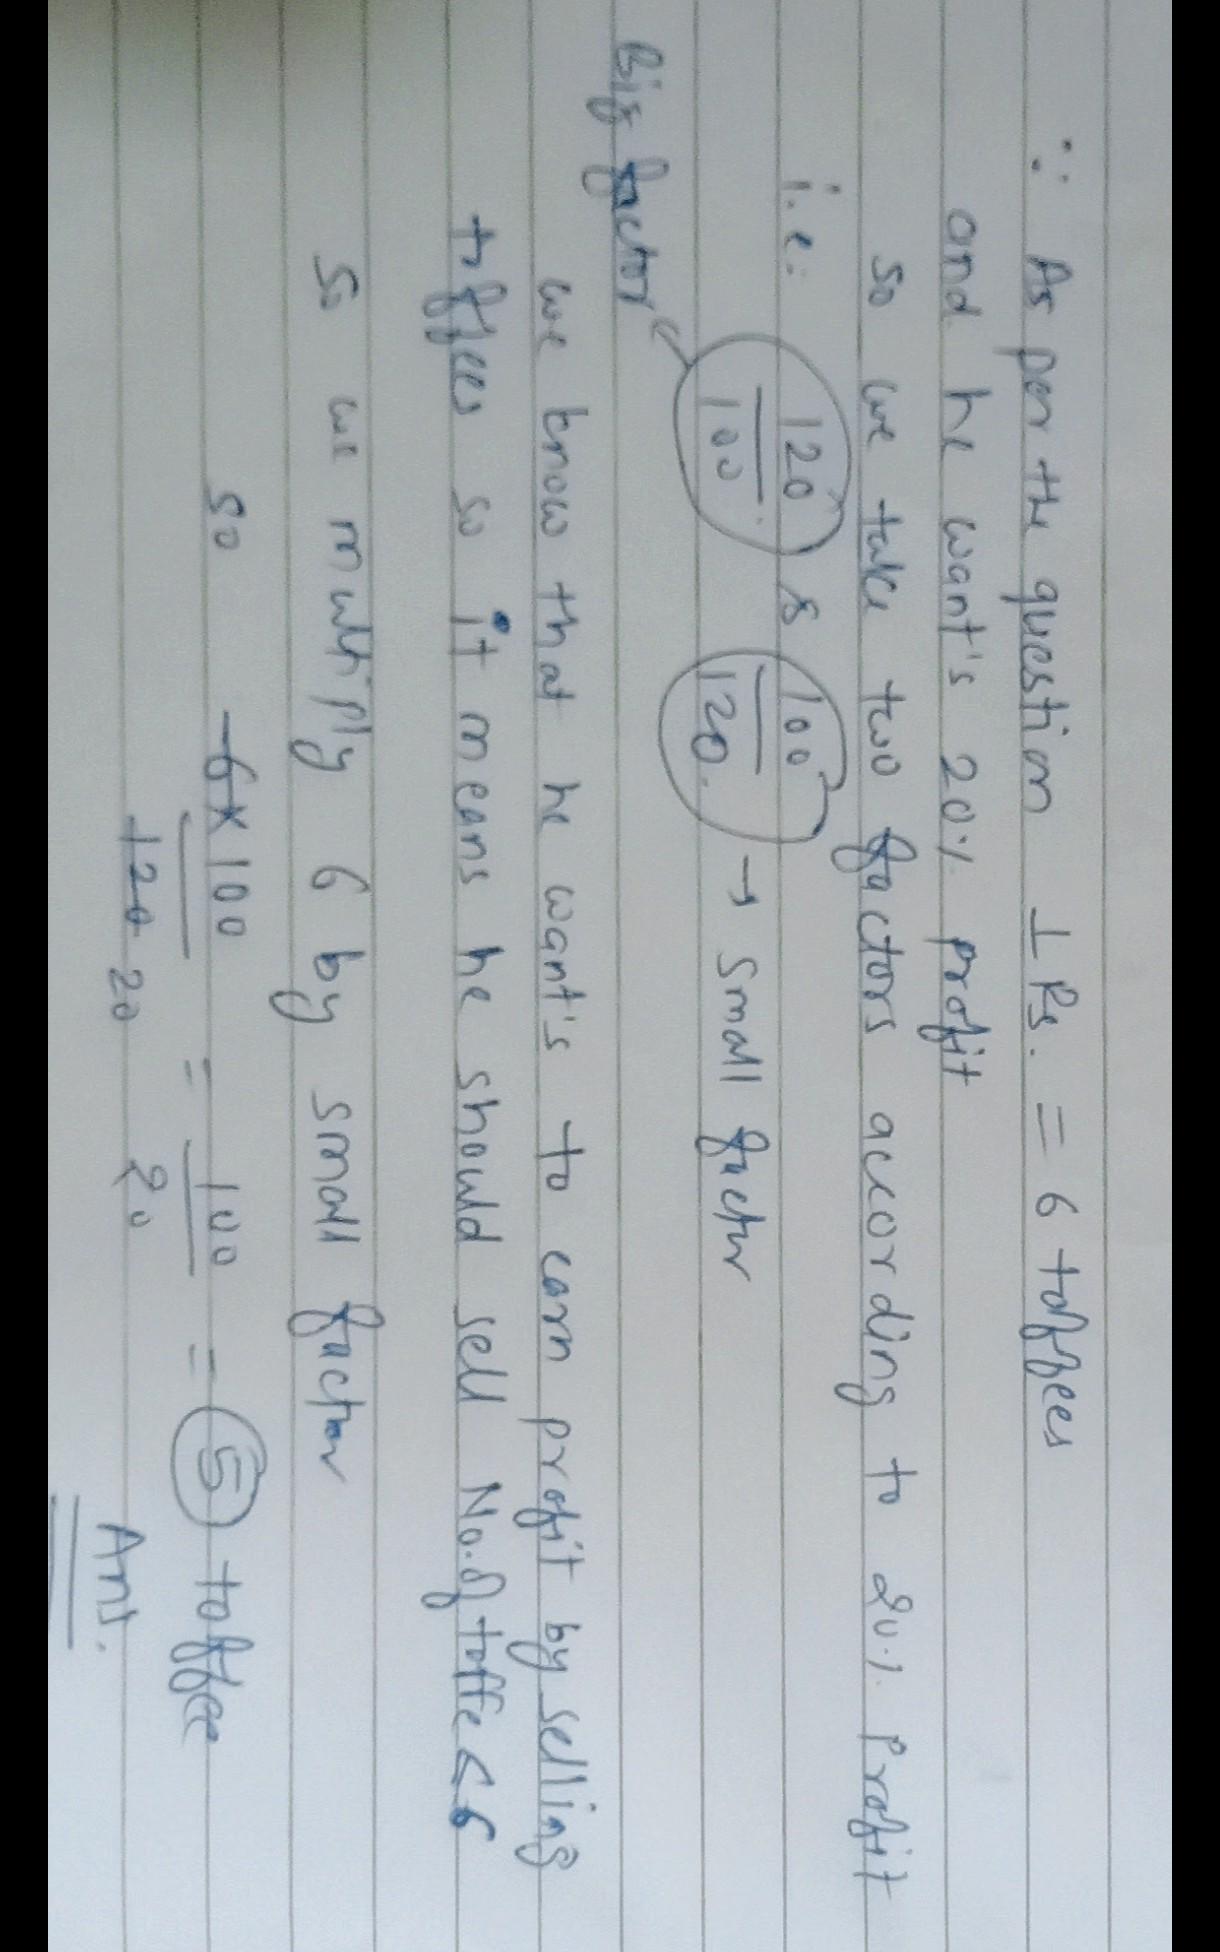 ∵ As per the question 1 Rs. = 6 toffees
and he want's 20% profit
so we take two factors according to 20% Profit
i.e. 120/100 & 100/120 → small factor
Big factor
we know that he want's to earn profit by selling
toffees so it means he should sell No. of toffe < 6
so we multiply 6 by small factor
so 6 × 100 / 120 20 = 100 / 20 = 5 toffee
Ans.